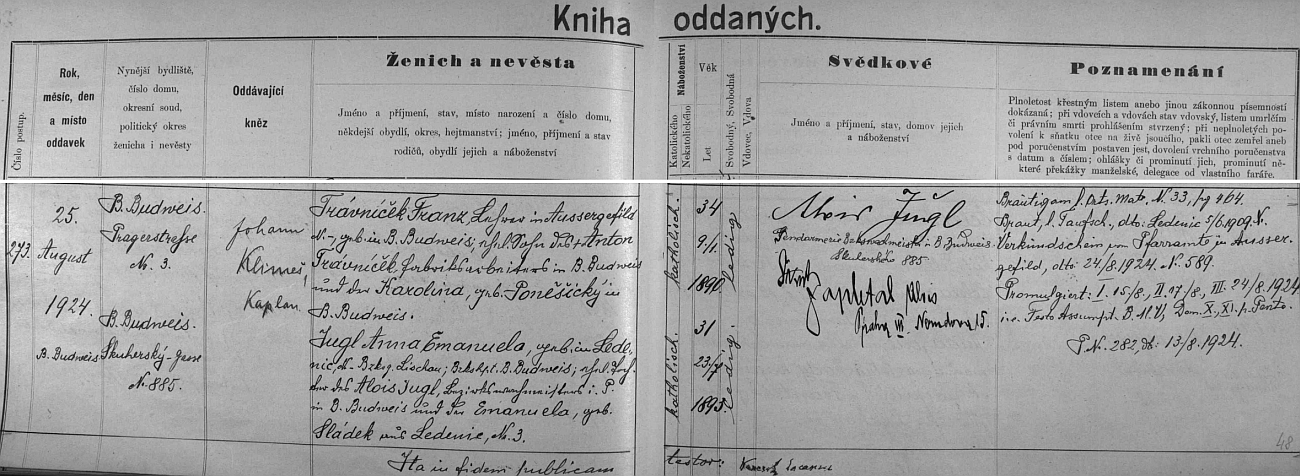 Kniha oddaných.
Číslo postup.
Rok,
měsíc, den
a místo
oddavek
Nynější bydliště,
číslo domu,
okresní soud,
politický okres
ženicha i nevěsty
Oddávající
kněz
Ženich a nevěsta
Jméno a příjmení, stav, místo narození a číslo domu,
někdejší obydlí, okres, hejtmanství; jméno, příjmení a stav
rodičů, obydlí jejich a náboženství
Náboženství
Katolického
Nekatolického
Věk
Let
Svobodný, Svobodná
Vdovec, Vdova
Svědkové
Jméno a příjmení, stav, domov jejich
a náboženství
Poznamenání
Plnoletost křestným listem anebo jinou zákonnou písemností
dokázaná; při vdovcích a vdovách stav vdovský, listem úmrtčím
či právním smrti prohlášením stvrzený; při neplnoletých po-
volení k sňatku otce na živě jsoucího, pakli otec zemřel aneb
pod poručenstvím postaven jest, dovolení vrchního poručenstva
s datum a číslem; ohlášky či prominutí jich, prominutí ně-
které překážky manželské, delegace od vlastního faráře.
273.
25.
August
1924.
B. Budweis
B. Budweis.
Pragerstrasse
N. 3.
B. Budweis.
Skuherský-gasse
N. 885.
Johann
Klimeš,
Kaplan
Trávníček Franz, Lehrer in Aussergefild
N. -, geb. in B. Budweis, ehel. Sohn des † Anton
Trávníček, Fabriksarbeiters in B. Budweis
und der Karolina, geb. Poněšický in
B. Budweis.
Jugl Anna Emanuela, geb. in Lede-
nic, N. Bzkg. Lischau; B. Budweis; ehel. Toch-
ter des Alois Jugl, Bezirkswachmeisters i. P.
in B. Budweis und der Emanuela, geb.
Sládek aus Ledenic, N. 3.
Ita in fidem publicam
katholisch.
34
9/1.
1890
ledig
katholisch.
31
23/7
1893.
ledig.
Alois Jugl
Gendarmerie Bezirkswachmeister in B. Budweis
885
Zapletal Alois
Praha III.
15.
testor:
Bräutigam l. dto. Matr. N. 33, pg 164.
Braut, l. Taufsch., dto: Ledenic 5/6.1909. N.
Verkündschein vom Pfarramte in Ausser-
gefild, dto 24/8.1924. N. 589.
Promulgiert: I. 15/8., II. 17/8., III. 24/8.1924
i. e. Festo Assumpt. B. M. V., Dom. X., XI. p. Pent.
P. N. 282, dto: 13/8.1924.
48